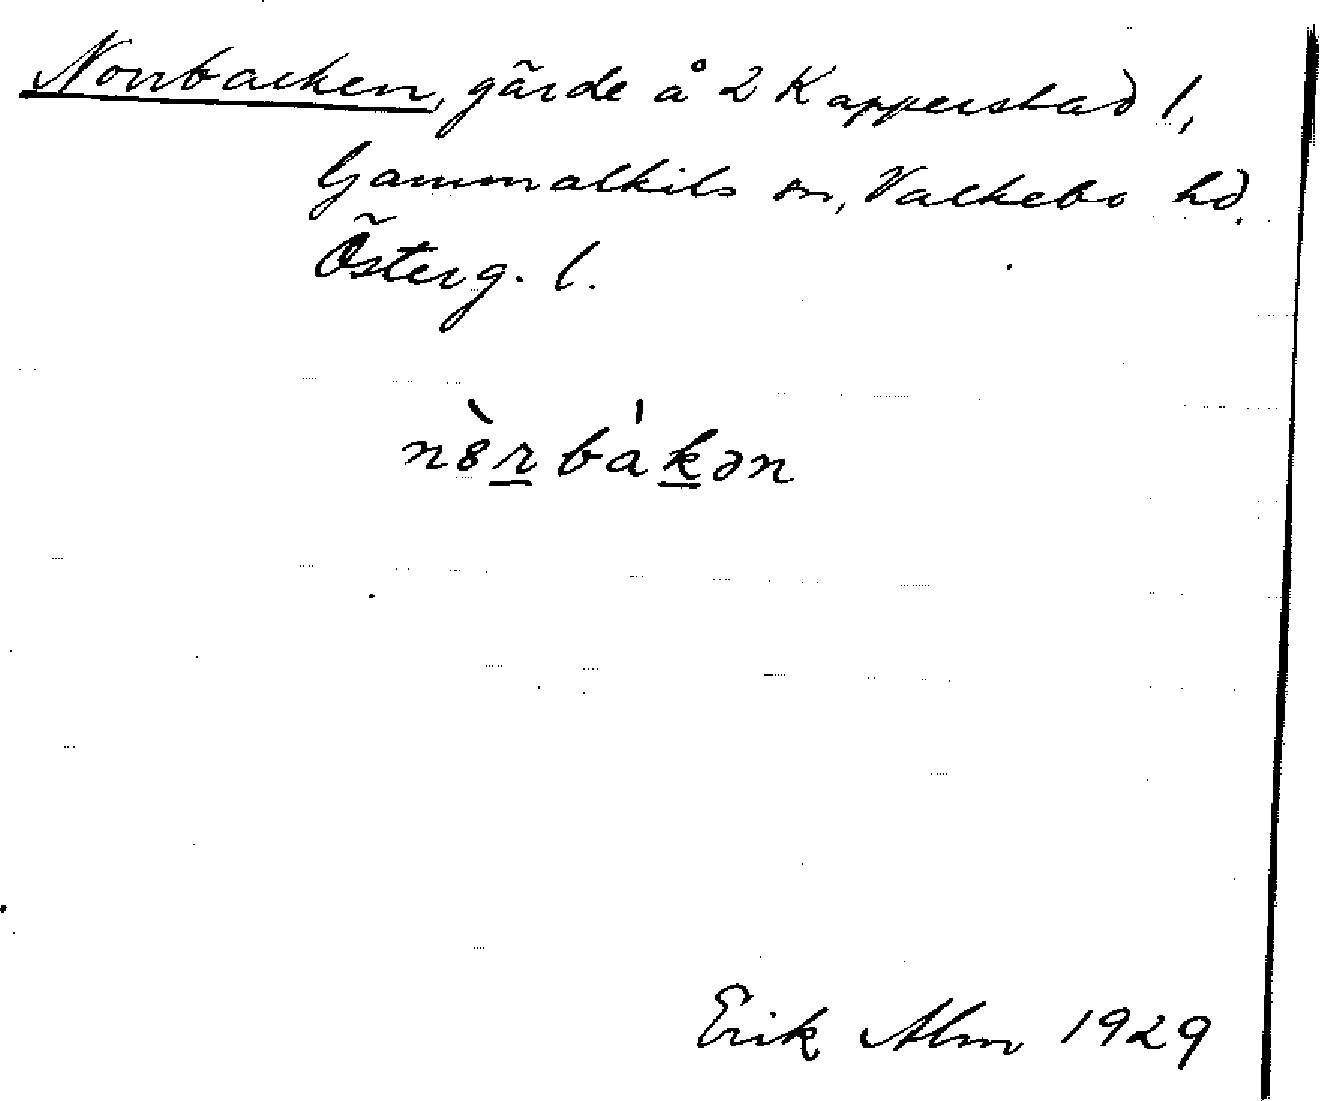 Norrbacken, gärde å 2 Kapperstad 1,
Gammalkils sn, Valkebo hd.
Österg. l.
nòrbákən
Erik Alm 1929